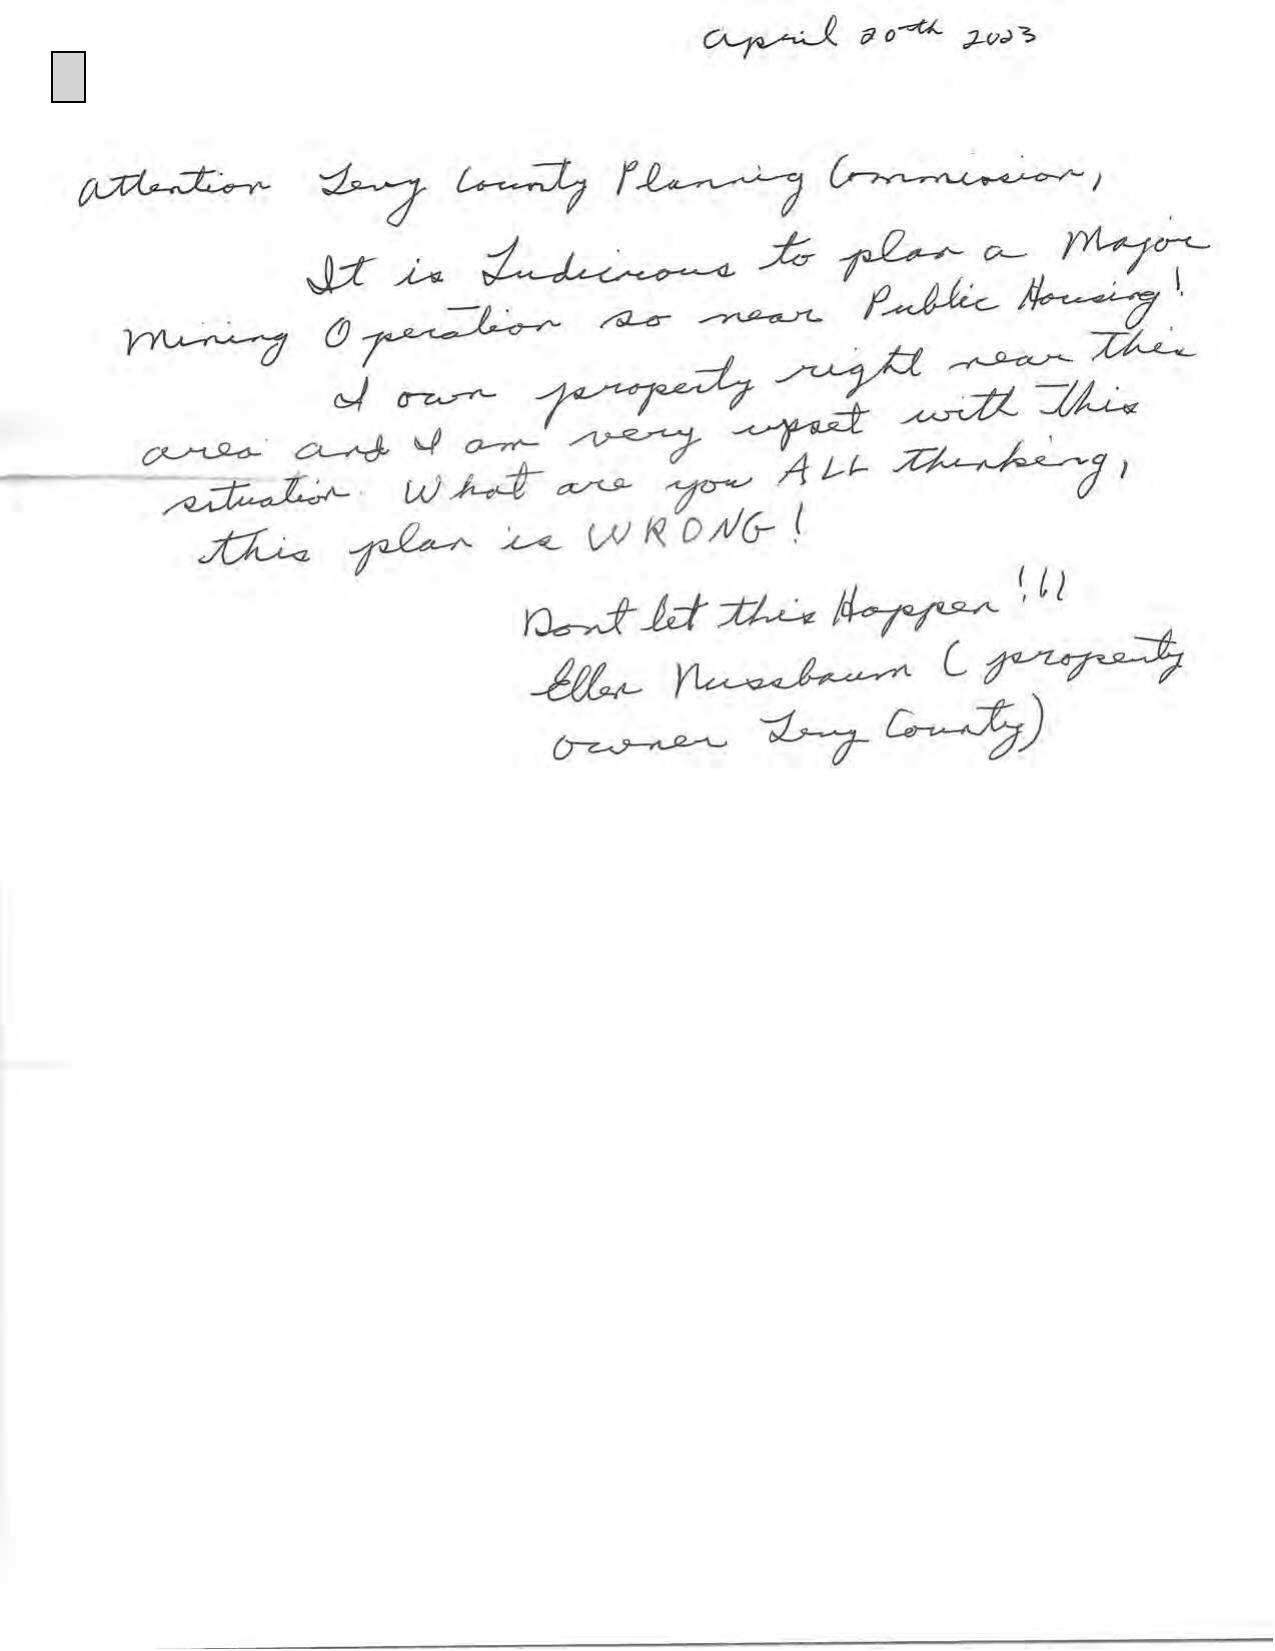 April 20th 2023
Attention Levy County Planning Commission,
It is Ludicrous to plan a Major
Mining Operation so near Public Housing!
I own property right near this
area and I am very upset with this
situation. What are you ALL thinking,
this plan is WRONG!
Dont let this Happen!!!
Ellen Nussbaum (property
owner Levy County)